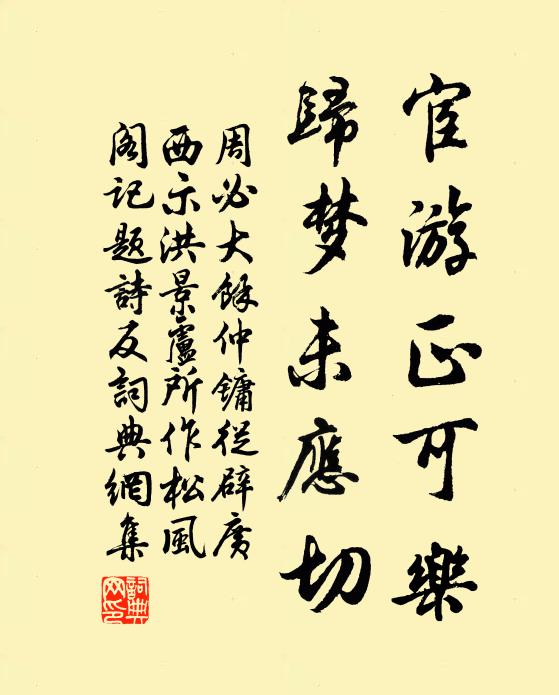 宦游正可樂
歸梦未應切
周必大餘仲鏞從辟廣
西示洪景盧所作松風
阁记题詩反詞典網集
詞典
网印